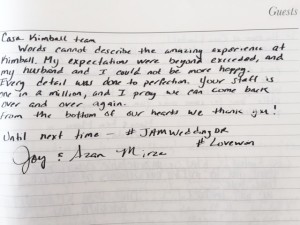 Guests
Casa Kimball team
Words cannot describe the amazing experience at
Kimball. My expectations were beyond exceeded, and
my husband and I could not be more happy.
Every detail was done to perfection. Your staff is
one in a million, and I pray we can come back
over and over again.
From the bottom of our hearts we thank you!
Until next time - #JAMWeddingDR
#Lovewon
Joy & Azan Mirza